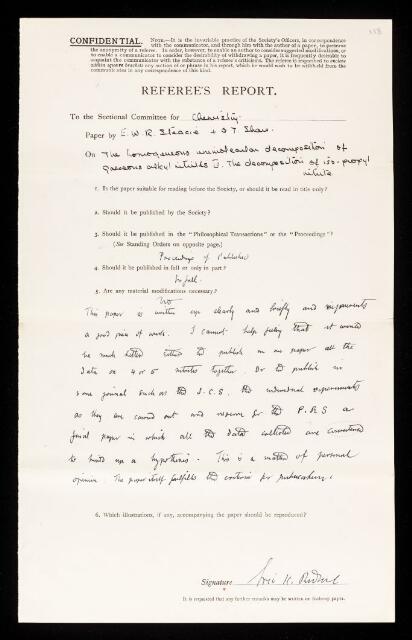 158
CONFIDENTIAL. NOTE.—It is the invariable practice of the Society's Officers, in correspondence
with the communicator, and through him with the author of a paper, to preserve
the anonymity of a referee. In order, however, to enable an author to consider suggested modifications, or
to enable a communicator to consider the desirability of withdrawing a paper, it is frequently desirable to
acquaint the communicator with the substance of a referee's criticisms. The referee is requested to enclose
within square brackets any section of or phrase in his report, which he would wish to be withheld from the
communicator in any correspondence of this kind.
REFEREE'S REPORT.
To the Sectional Committee for Chemistry.
Paper by E. W. R. Steacie + G T. Shaw.
On The homogeneous unimolecular decomposition of
gaseous alkyl nitrites II. The decomposition of iso-propyl
nitrite.
1. Is the paper suitable for reading before the Society, or should it be read in title only?
2. Should it be published by the Society?
3. Should it be published in the "Philosophical Transactions" or the "Proceedings"?
(See Standing Orders on opposite page.)
Proceedings if Published
4. Should it be published in full or only in part?
In full.
5. Are any material modifications necessary?
No
This paper is written up clearly and briefly and represents
a good piece of work. I cannot help feeling that it would
be much better either to publish in one paper all the
data on 4 or 5 nitrites together. Or to publish in
some journal such as the J.C.S. the individual experiments
as they are carried out and reserve for the P.R.S a
final paper in which all the data collected are
to build up a hypothesis. This is a matter of personal
opinion. The paper itself fulfills the criteria for publication.
6. Which illustrations, if any, accompanying the paper should be reproduced?
Signature Eric K. Rideal
It is requested that any further remarks may be written on foolscap paper.